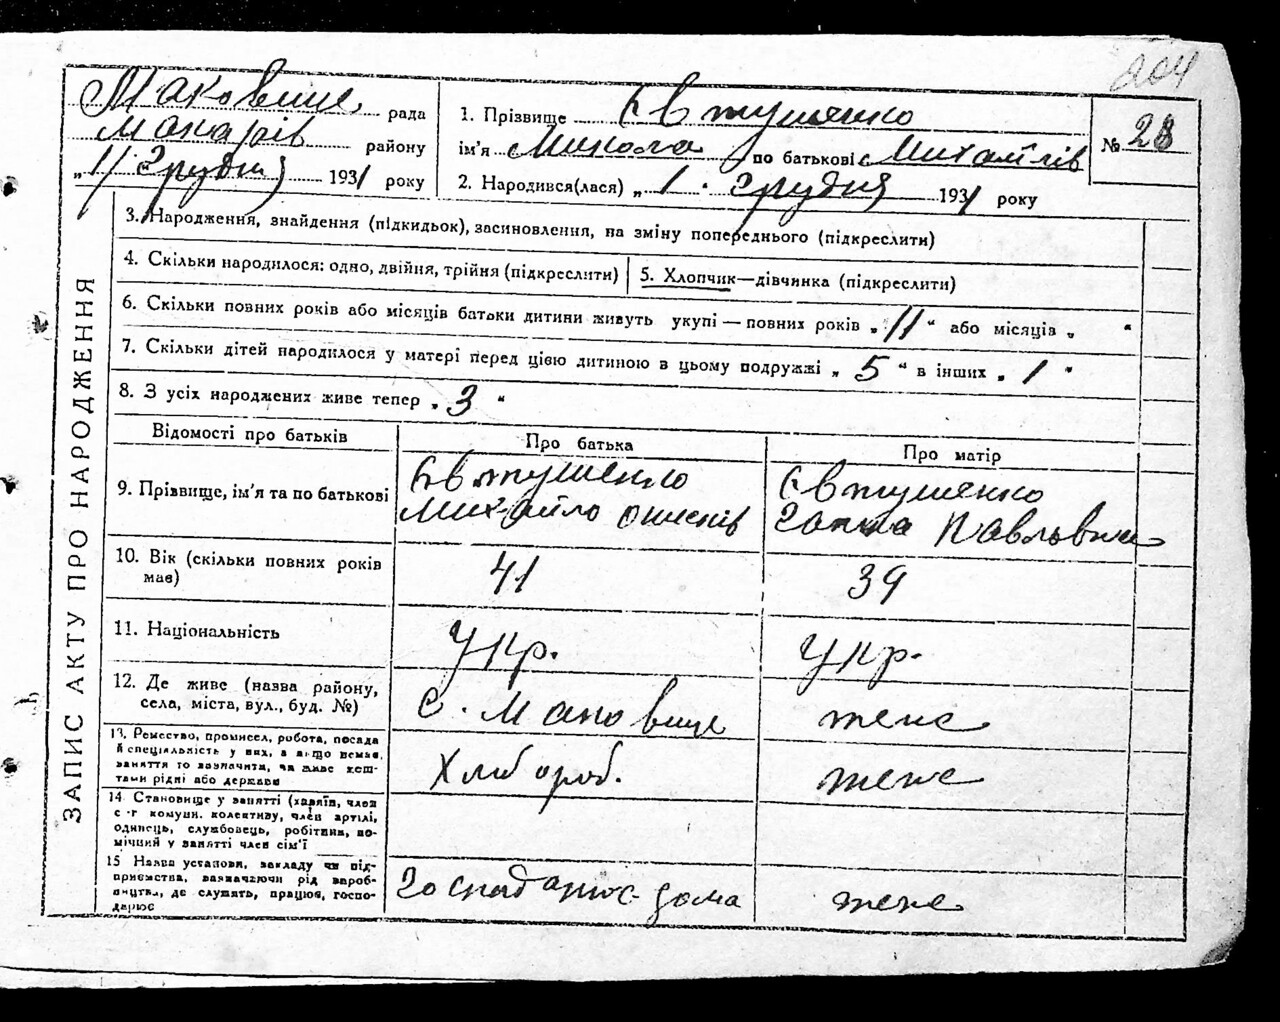 204
Маковище рада
Макарів району
„11 Грудня 1931 року
1. Прізвище Євтушенко
ім'я Микола по батькові Михайлів
2. Народився(лася) „1. Грудня 1931 року
№ 28
ЗАПИС АКТУ ПРО НАРОДЖЕННЯ
3. Народження, знайдення (підкидьок), засиновлення, на зміну попереднього (підкреслити)
4. Скільки народилося: одно, двійня, трійня (підкреслити)
5. Хлопчик—дівчинка (підкреслити)
6. Скільки повних років або місяців батьки дитини живуть укупі — повних років „11“ або місяців „ “
7. Скільки дітей народилося у матері перед цією дитиною в цьому подружжі „5“ в інших „1“
8. З усіх народжених живе тепер „3“
Відомості про батьків
Про батька
Про матір
9. Прізвище, ім'я та по батькові
Євтушенко
Михайло
Євтушенко
Ганна Павлівна
10. Вік (скільки повних років
має)
41
39
11. Національність
Укр.
Укр.
12. Де живе (назва району,
села, міста, вул., буд. №)
С. Маковище
теже
13. Ремество, промисел, робота, посада
й спеціяльність у них, а якщо немає
заняття то зазначити, чи живе кош-
тами рідні або держави
Хлібороб.
теже
14 Становище у занятті (хазяїн, член
с-г комуни, колективу, член артілі,
одинець, службовець, робітник, по-
мічний у занятті член сім'ї
15 Назва установи, закладу чи під-
приємства, зазначаючи рід вироб-
ництва, де служить, працює, госпо-
дарює
Господарює дома
теже